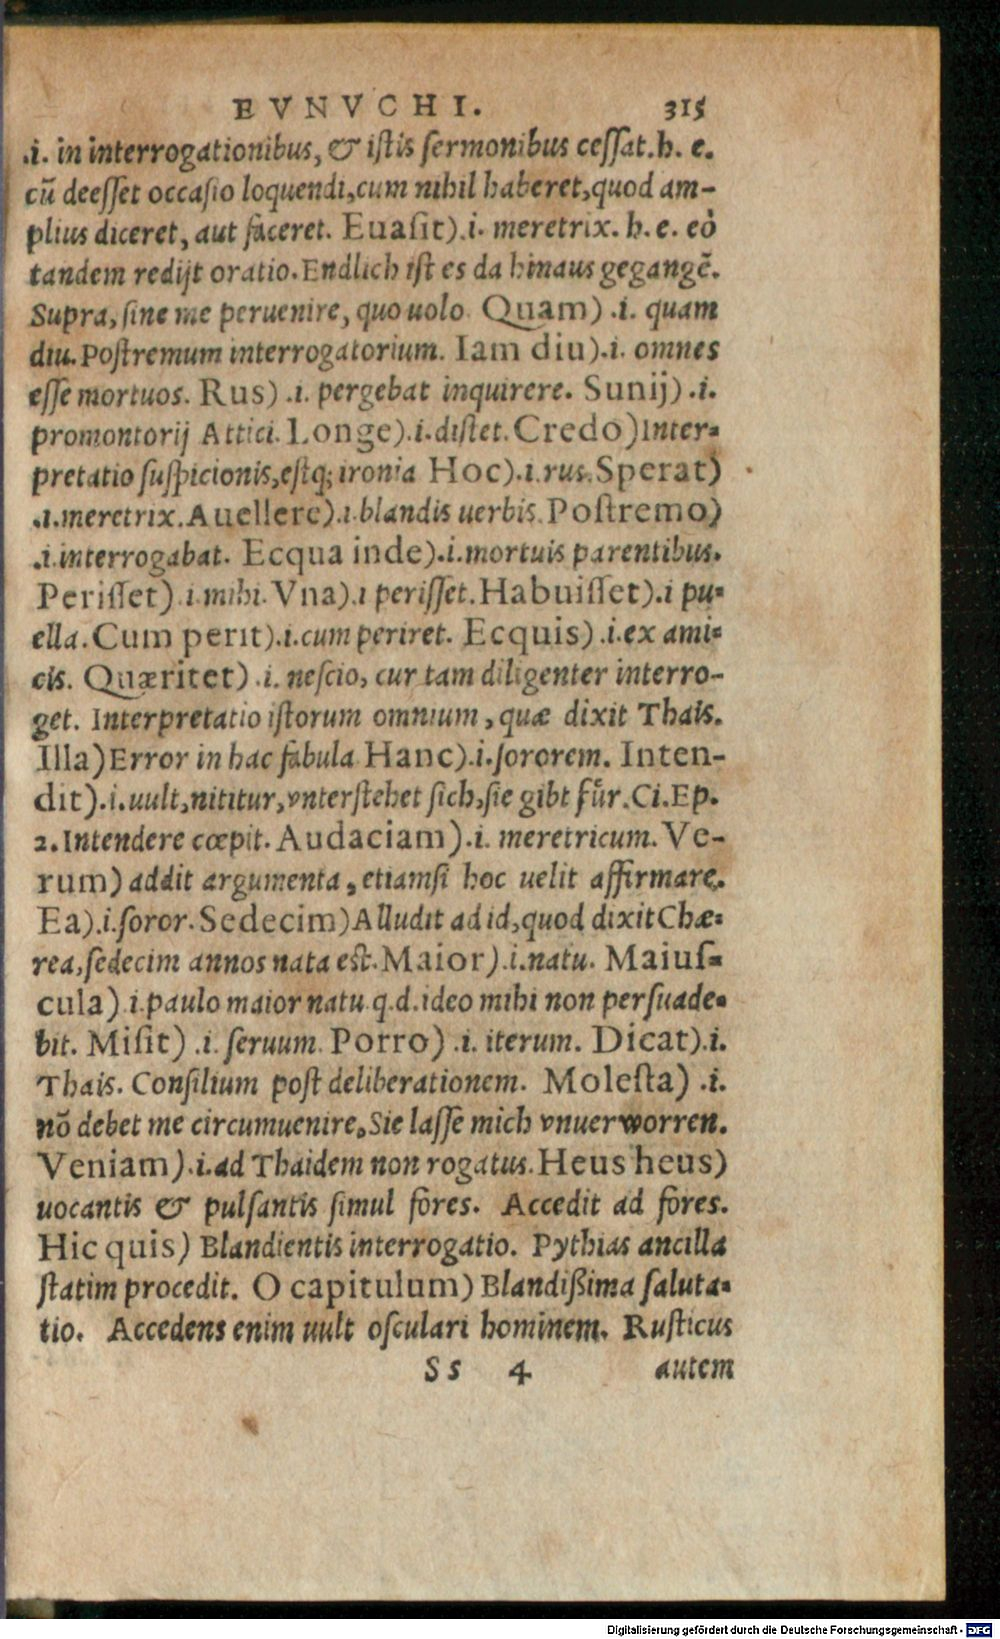 EVNVCHI. 315
.i. in interrogationibus, & istis sermonibus cessat.h. e.
cū deesset occasio loquendi,cum nihil haberet,quod am-
plius diceret, aut faceret. Euasit).i. meretrix. h. e. eò
tandem redijt oratio.Endlich ist es da hinaus gegangē.
Supra, sine me peruenire, quo uolo. Quam) .i. quam
diu. Postremum interrogatorium. Iam diu).i. omnes
esse mortuos. Rus) .i. pergebat inquirere. Sunij) .i.
promontorij Attici. Longe).i.distet. Credo)Inter-
pretatio suspicionis,estq; ironia Hoc).i.rus. Sperat)
.i.meretrix.Auellere).i.blandis uerbis. Postremo)
.i.interrogabat. Ecqua inde).i.mortuis parentibus.
Perisset) .i. mihi. Vna).i perisset. Habuisset).i pu-
ella. Cum perit).i.cum periret. Ecquis) .i.ex ami-
cis. Quæritet) .i. nescio, cur tam diligenter interro-
get. Interpretatio istorum omnium, quæ dixit Thais.
Illa)Error in hac fabula Hanc).i.sororem. Inten-
dit).i.uult,nititur,vnterstehet sich,sie gibt für.Ci.Ep.
2.Intendere cœpit. Audaciam).i. meretricum. Ve-
rum) addit argumenta, etiamsi hoc uelit affirmare.
Ea).i.soror. Sedecim)Alludit ad id,quod dixit Chæ-
rea,sedecim annos nata est. Maior).i.natu. Maius-
cula).i.paulo maior natu.q.d.ideo mihi non persuade-
bit. Misit) .i. seruum. Porro) .i. iterum. Dicat).i.
Thais. Consilium post deliberationem. Molesta) .i.
nō debet me circumuenire. Sie lasse mich vnuerworren.
Veniam).i.ad Thaidem non rogatus. Heus heus)
uocantis & pulsantis simul fores. Accedit ad fores.
Hic quis) Blandientis interrogatio. Pythias ancilla
statim procedit. O capitulum) Blandißima saluta-
tio. Accedens enim uult osculari hominem. Rusticus
Ss 4 autem
Digitalisierung gefördert durch die Deutsche Forschungsgemeinschaft - DFG